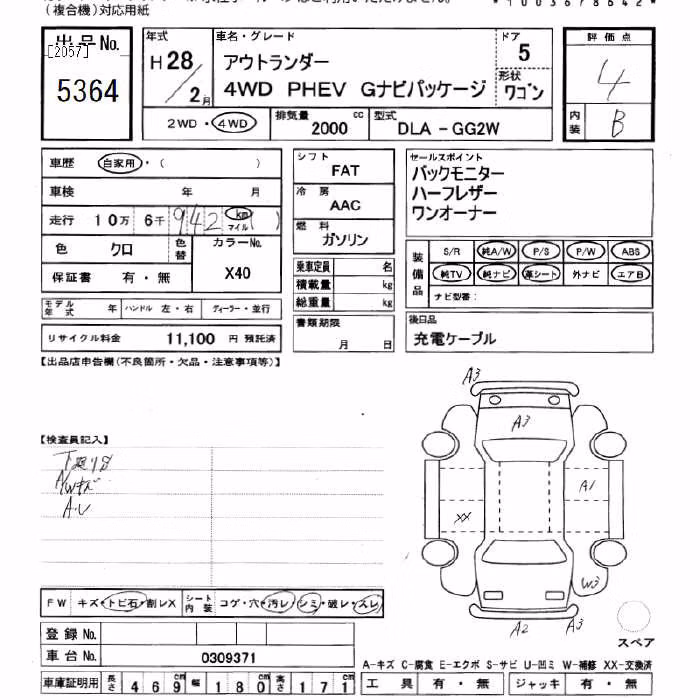 (複合機)対応用紙
出品No.
[2057]
5364
年式
H28/2月
車名・グレード
アウトランダー
4WD PHEV Gナビパッケージ
ドア
5
形状
ワゴン
2WD・4WD
排気量 2000 cc
型式 DLA-GG2W
評価点
4
内装
B
車歴 自家用・( )
車検 年 月
走行 10万 6千 942 km マイル ( )
色 クロ
色替
カラーNo.
X40
保証書 有・無
モデル年式 年 ハンドル 左・右 ディーラー・並行
リサイクル料金 11,100 円 預託済
シフト
FAT
冷房
AAC
燃料
ガソリン
乗車定員 名
積載量 kg
総重量 kg
書類期限
月 日
セールスポイント
バックモニター
ハーフレザー
ワンオーナー
装備品
S/R 純A/W P/S P/W ABS
純TV 純ナビ 革シート 外ナビ エアB
ナビ型番:
後日品
充電ケーブル
【出品店申告欄(不良箇所・欠品・注意事項等)】
【検査員記入】
下廻りサ
A/Wキズ
A3
A3
A1
XX
W3
A2
A3
スペア
FW キズ・トビ石・割レX
シート内装 コゲ・穴・汚レ・シミ・破レ・スレ
登録No.
車台No. 0309371
車庫証明用 長さ 469 cm 幅 180 cm 高さ 171 cm
A-キズ C-腐食 E-エクボ S-サビ U-凹ミ W-補修 XX-交換済
工具 有・無 ジャッキ 有・無